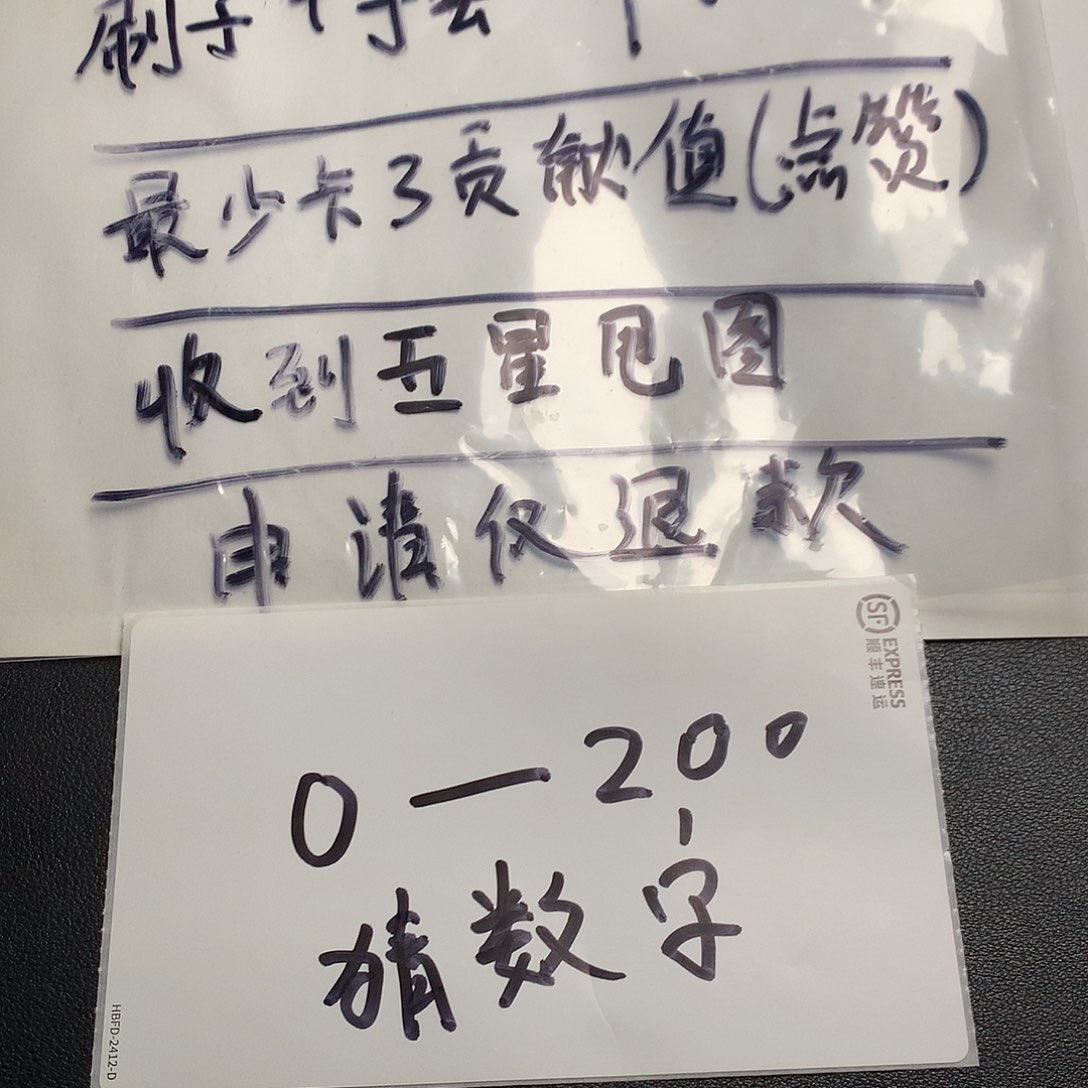 刷子
最少卡3贡献值(点赞)
收到五星甩图
申请仅退款
SF EXPRESS
顺丰速运
0—200
猜数字
HBFD-2412-D